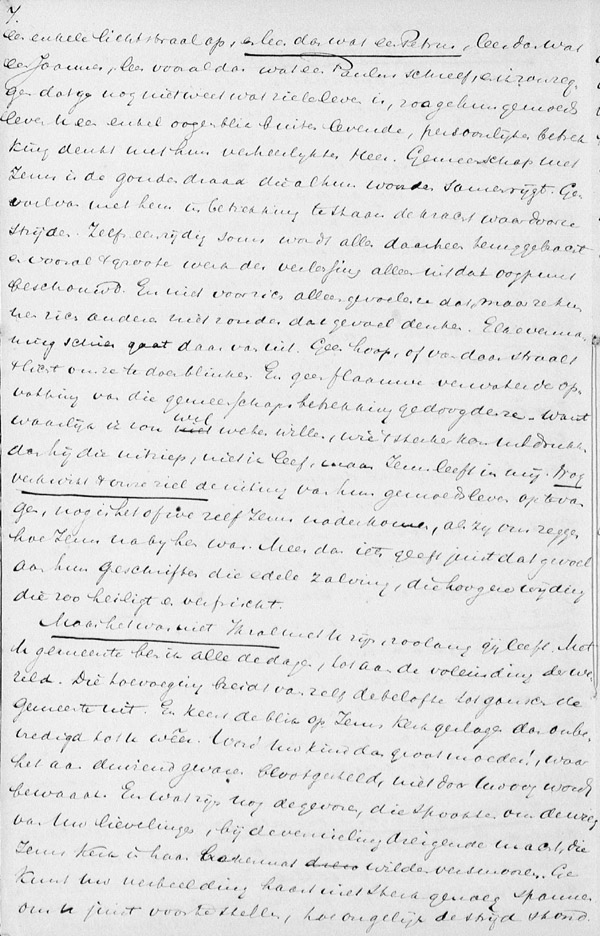 7.
een enkele lichtstraal op, en lees dan wat een Petrus, lees dan wat
een Joannes, lees vooral dan wat een Paulus schreef, en
gen dat ge nog niet weet wat zieleleven is, zoo ge hun gemoeds
leven een enkel oogenblik buiten levende, persoonlijke betrek
king denkt met hun verheerlijkten Heer. Gemeenschap met
Jezus is de gouden draad die al hun woorden samenrijgt. Ge
voel van met hem in betrekking te staan de kracht waardoor ze
strijden. Zelfs eenzijdig soms wordt alles daarheen teruggebracht
en vooral 't groote werk der verlossing alleen uit dat oogpunt
beschouwd. En niet voor zich alleen gevoelen ze dat, maar ze kun
nen zich anderen niet zonder dat gevoel denken. Elke verma
ning gaat daar van uit. Geen hoop, of van daar straalt
't licht dat ze doen blinken. En geen flaauwe verwaterde op
vatting van die gemeenschapsbetrekking gedoogden ze. Want
waarlijk ik zou wel weten willen, wie 't sterker kan uitdrukken
dan hij die uitriep, niet ik leef, maar Jezus leeft in mij. Nog
verkwikt 't onze ziel de uiting van hun gemoedsleven op te van
gen, nog is het of we zelf Jezus nader komen, als zij ons zeggen
hoe Jezus nabij hen was. Meer dan iets geeft juist dat gevoel
aan hun geschriften die edele zalving, die hoogere wijding
die zoo heiligt en verfrischt.
Maar het was niet Ik zal met u zijn, zoolang gij leeft. Met
de gemeente ben ik alle de dagen, tot aan de voleinding der we
reld. Die toevoeging breidt van zelf de belofte tot gansch de
gemeente uit. En keert de blik op Jezus kerk geslagen dan onbe
vredigd tot u weêr. Word uw kind dan groot moeder, waar
het aan duizend gevaren blootgesteld, niet door Uw oog wordt
bewaakt. En wat zijn nog de gevaren, die spookten om de wieg
van Uw lievelingen, bij de vernieling dreigende macht, die
Jezus kerk in haar bakermat wilde versmooren. Ge
kunt uw verbeelding haast niet sterk genoeg spannen
om u juist voor te stellen, hoe ongelijk de strijd stond.